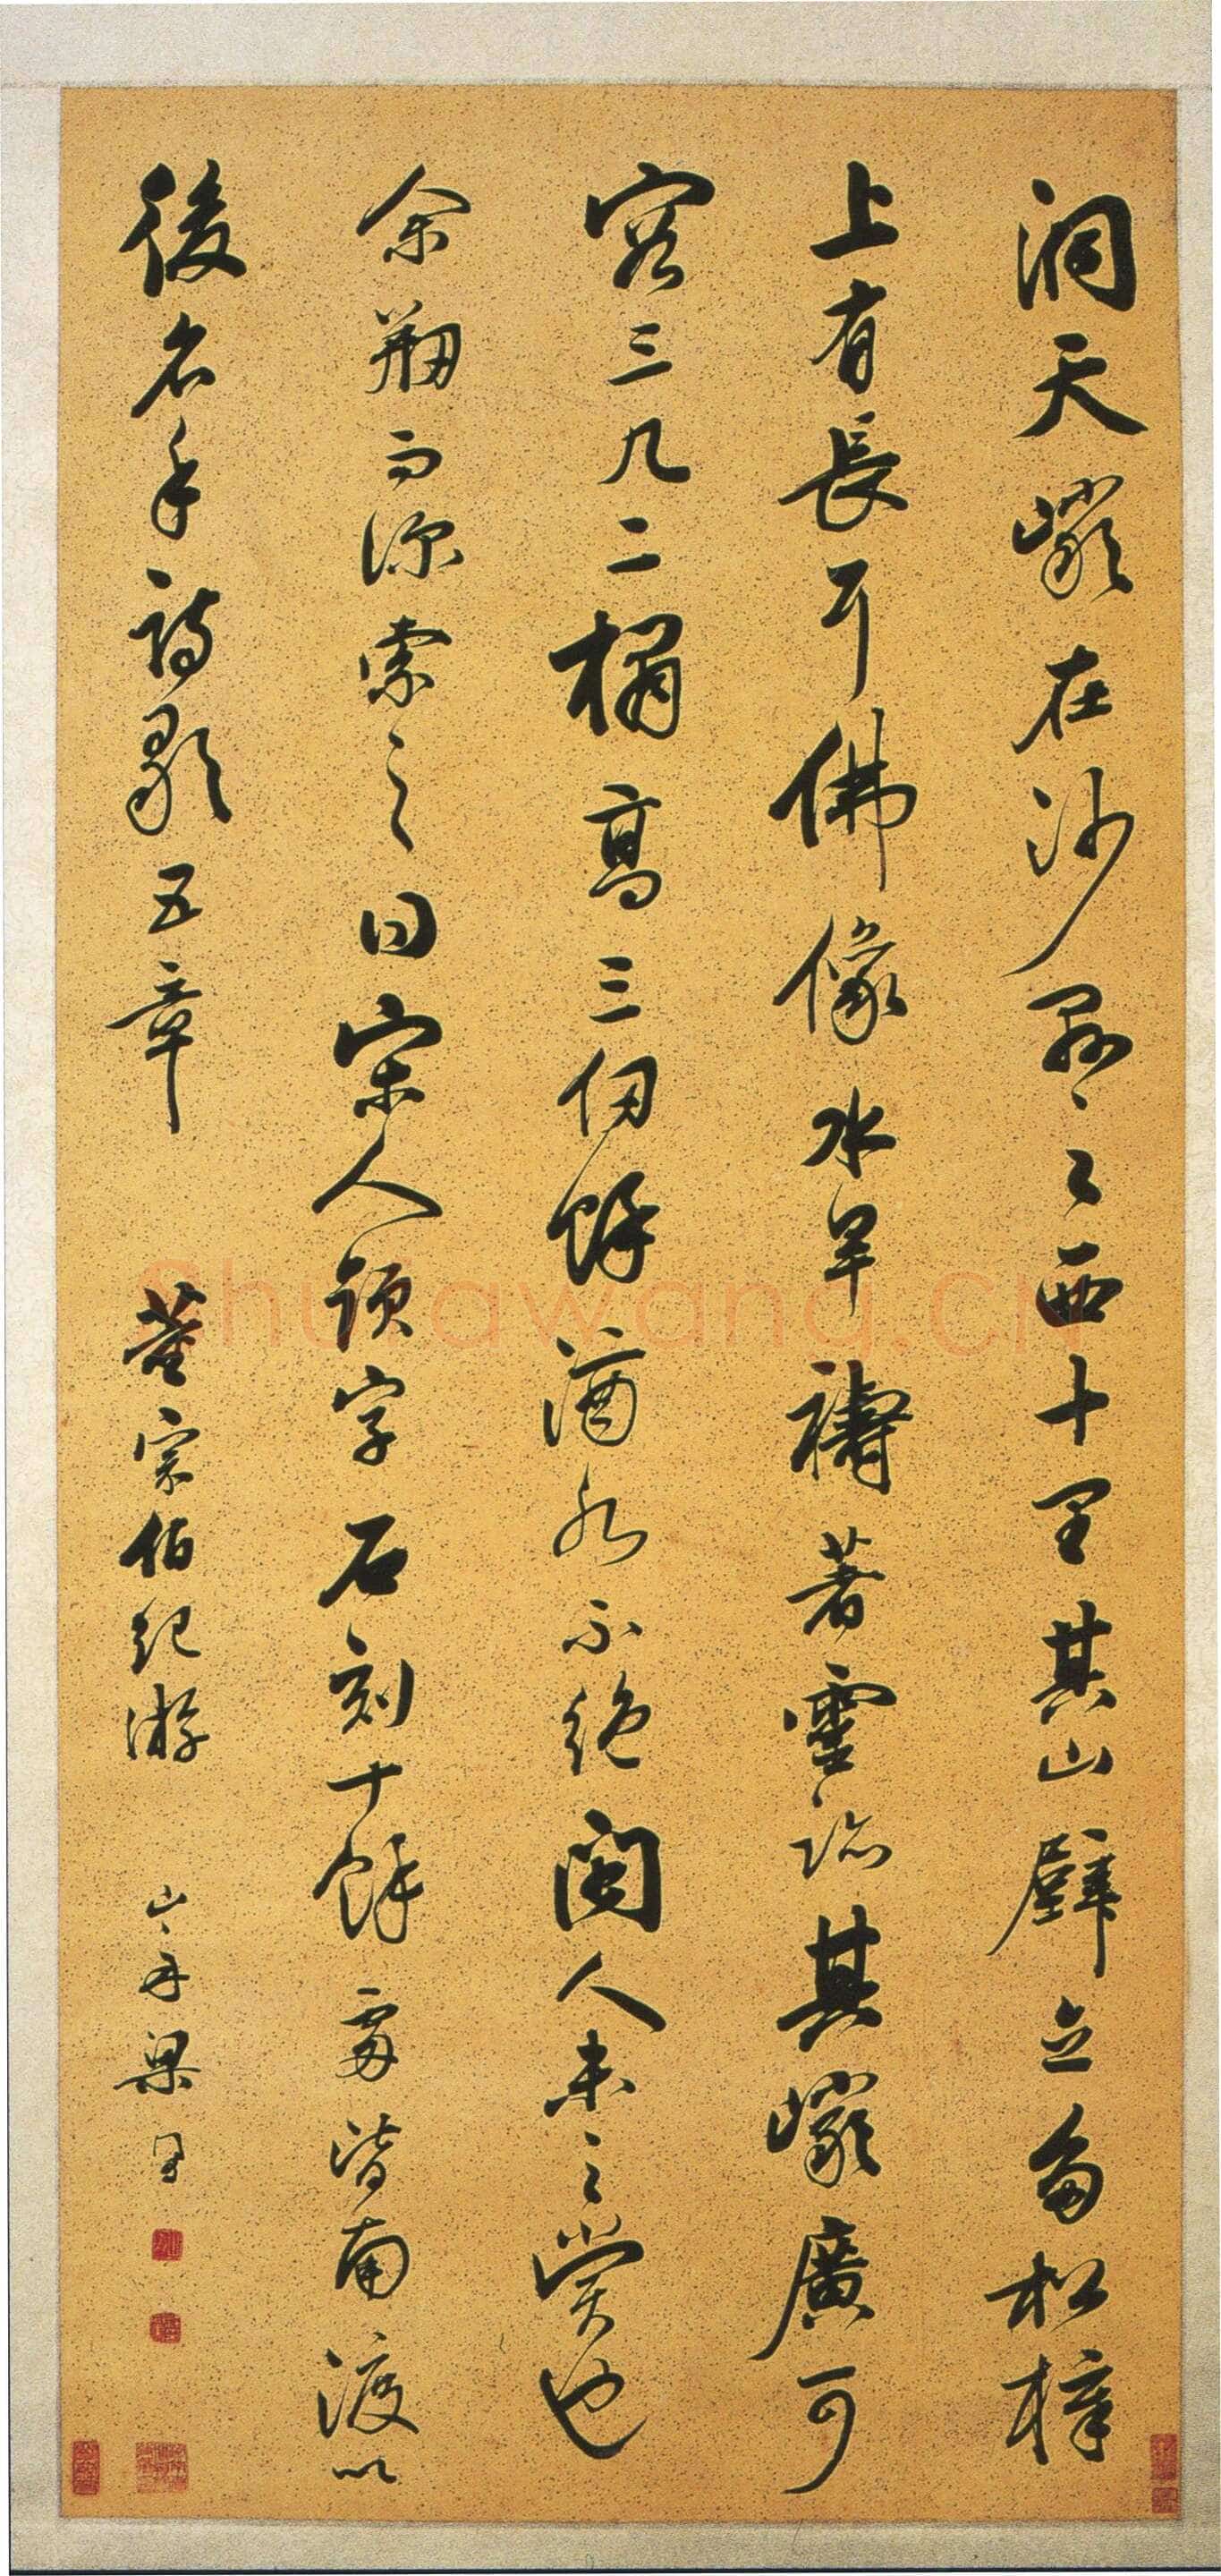 洞天巖在沙縣之西十里其山壁立多松樟
上有長耳佛像水旱禱著靈跡其巖廣可
容三几二榻高三仞餘滴水不絕閩人未之賞也
余剏而深索之曰宋人題字石刻十餘處皆南渡以
後名手詩歌五章 董宗伯紀游 山舟梁同書
Shufawang.CN